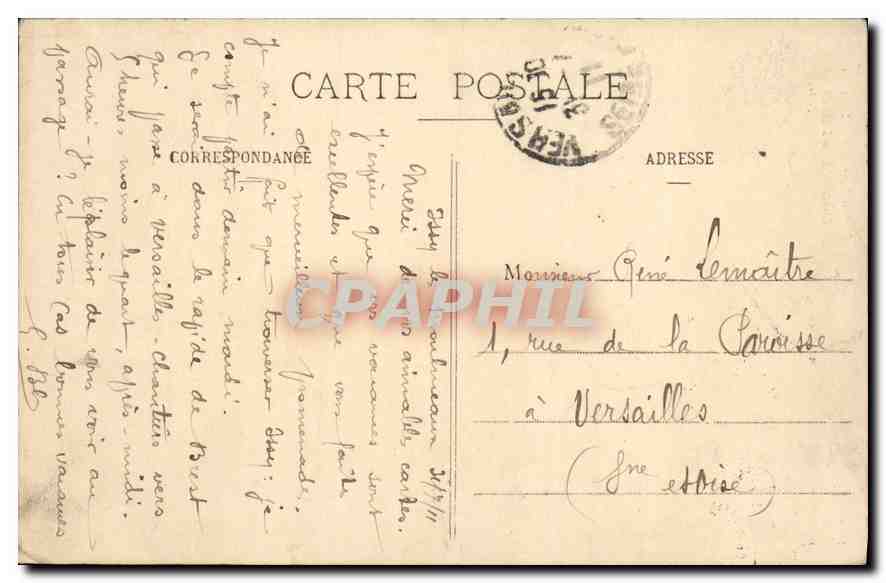 CARTE POSTALE
CORRESPONDANCE
ADRESSE
Issy les Moulineaux 31/7/11
Merci de vos aimables cartes.
J'espère que vos vacances sont
excellentes et que vous faîtes
de merveilleuses promenades.
Je n'ai fait que traverser Issy : je
compte partir demain mardi.
Je serai dans le rapide de Brest
qui passe à Versailles-Chantiers vers
9 heures moins le quart, après-midi.
Aurai-je le plaisir de vous voir au
passage ? En tous cas bonnes vacances
Monsieur René Lemaître
1, rue de la Paroisse
à Versailles
(Sne et Oise)
CPAPHIL